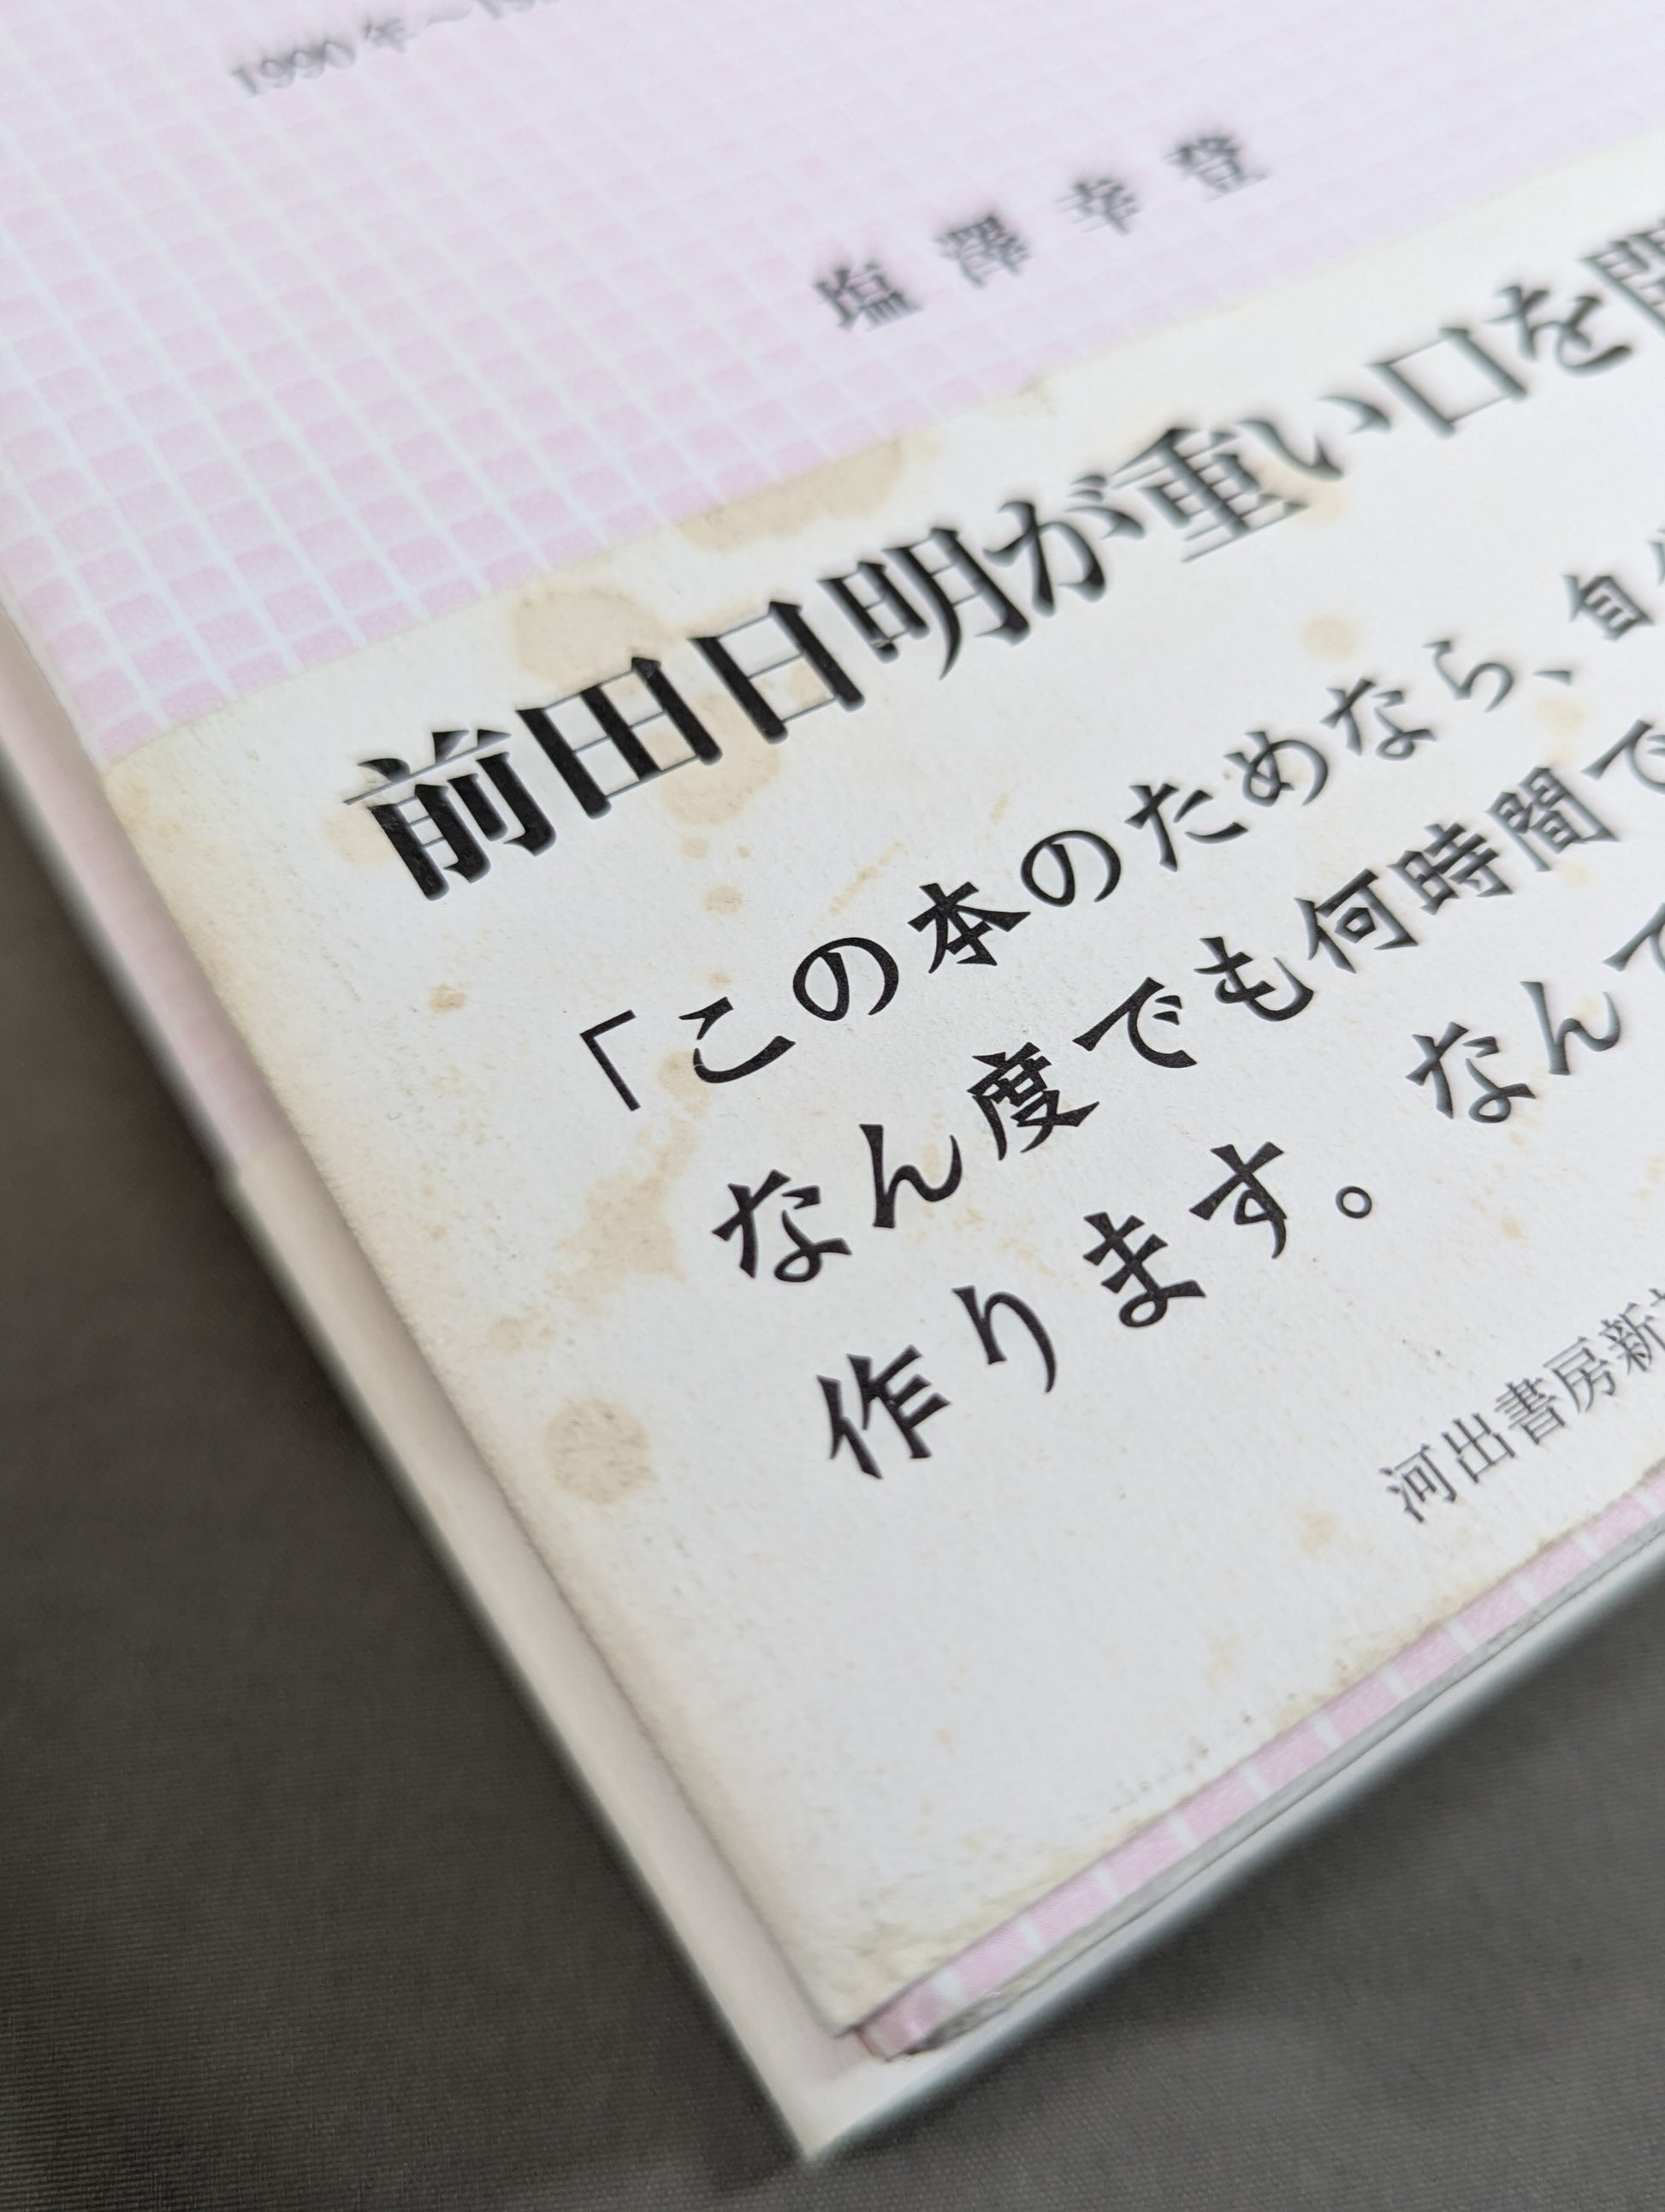 1990年〜19
塩澤幸登
前田日明が重い口を開
「この本のためなら、自
なん度でも何時間で
作ります。なんで
河出書房新